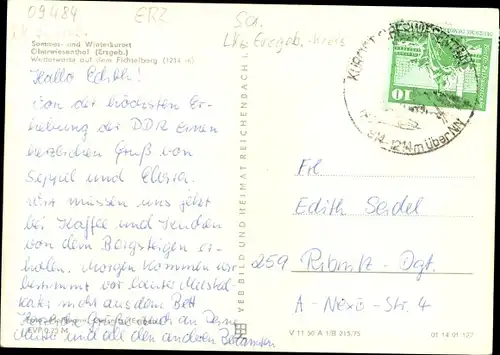 09484 ERZ Sa.
Lkr. Erzgeb.-kreis
Sommer- und Winterkurort
Oberwiesenthal (Erzgeb.)
Wetterwarte auf dem Fichtelberg (1214 m)
Hallo Edith!
Von der höchsten Er-
hebung der DDR einen
herzlichen Gruß von
Seppel und
Wir müssen uns jetzt
bei Kaffee und Kuchen
von dem Bergsteigen er-
holen. Morgen kommen wir
bestimmt vor lauter Muskel-
kater nicht aus dem Bett
Herzliche Grüße auch an Deine
Mutter und all den anderen Bekannten
EVP 0,25 M
VEB BILD UND HEIMAT REICHENBACH i. V.
KURORT OBERWIESENTHAL
1214 m über NN
10
Frl.
Edith Seidel
259 Ribnitz - Dgt.
A - Nexö - Str. 4
V 11 50 A 1/B 215/75
01 14 01 127